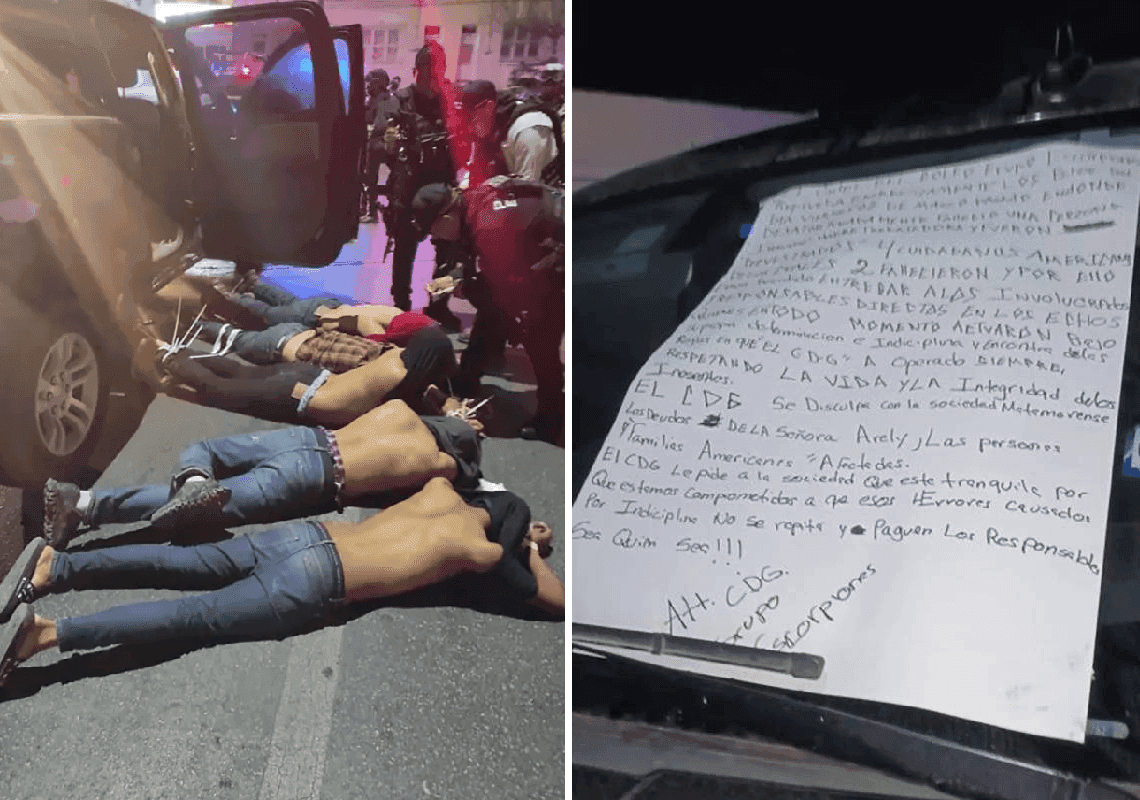 GOLFO GRUPO Escorpiones
ENERGICAMENTE LOS ECHOS DEL
DE MARZO PASADO ENDONDE
FALLECIO UNA PERSONA
MADRE TRABAJADORA Y FUERON
4 CIUDADANOS AMERICANOS
2 FALLECIERON Y POR ELLO
ENTREGAR A LOS INVOLUCRADOS
RESPONSABLES DIRECTOS EN LOS ECHOS
QUIENES EN TODO MOMENTO ACTUARON BEJO
determinacion e Indiciplina y encontra delas
Reglas en que "EL CDG" A Operado SIEMPRE,
RESPETANDO LA VIDA Y LA Integridad delos
Inosentes.
EL CDG Se Disculpa con la sociedad Matamorense
Los Deudos DE LA Señora Arely, Las personas
y Familias Americanes "Afectadas.
El CDG Le pide a la sociedad Que este tranquile por
Que estemos Comprometidos a que esos "Errores causados
Por Indiciplina No se repita y Paguen Los Responsables
Sea Quim Sea!!!
Att. CDG.
Grupo
Escorpiones